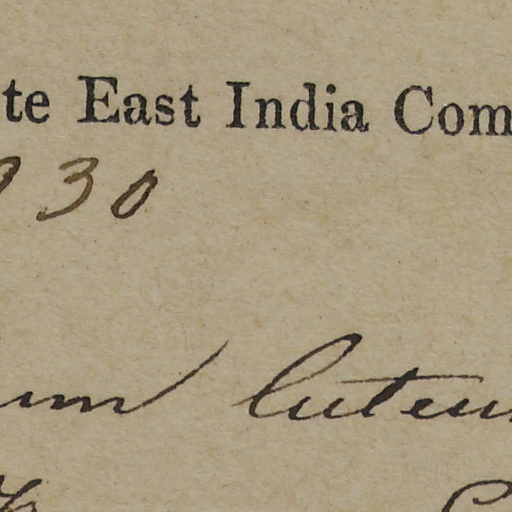 te East India Com
30
luteu